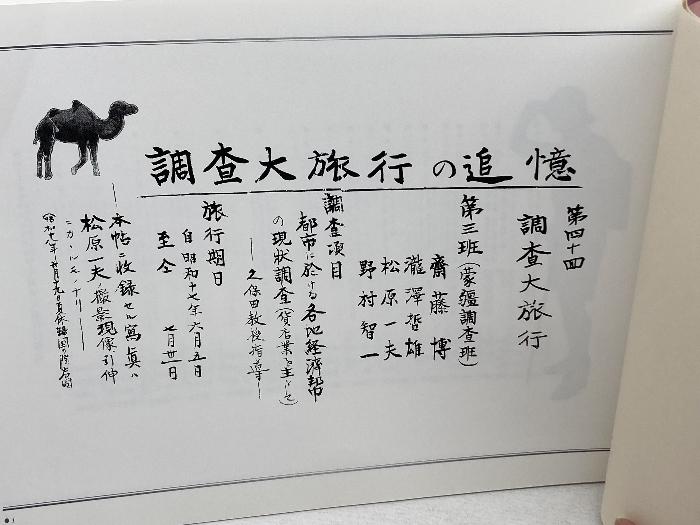 調査大旅行の追憶
第四十四
調査大旅行
第三班(蒙疆調査班)
齋藤博
瀧澤哲雄
松原一夫
野村智一
調査項目
都市に於ける各地経済幇
の現状調査(貨店業を主にして)
―久保田教授指導―
旅行期日
自昭和十七年六月五日
至仝七月廿一日
―本帖ニ収録セル寫真ハ
松原一夫ノ撮影現像引伸
ニカヽルモノナリ―
昭和